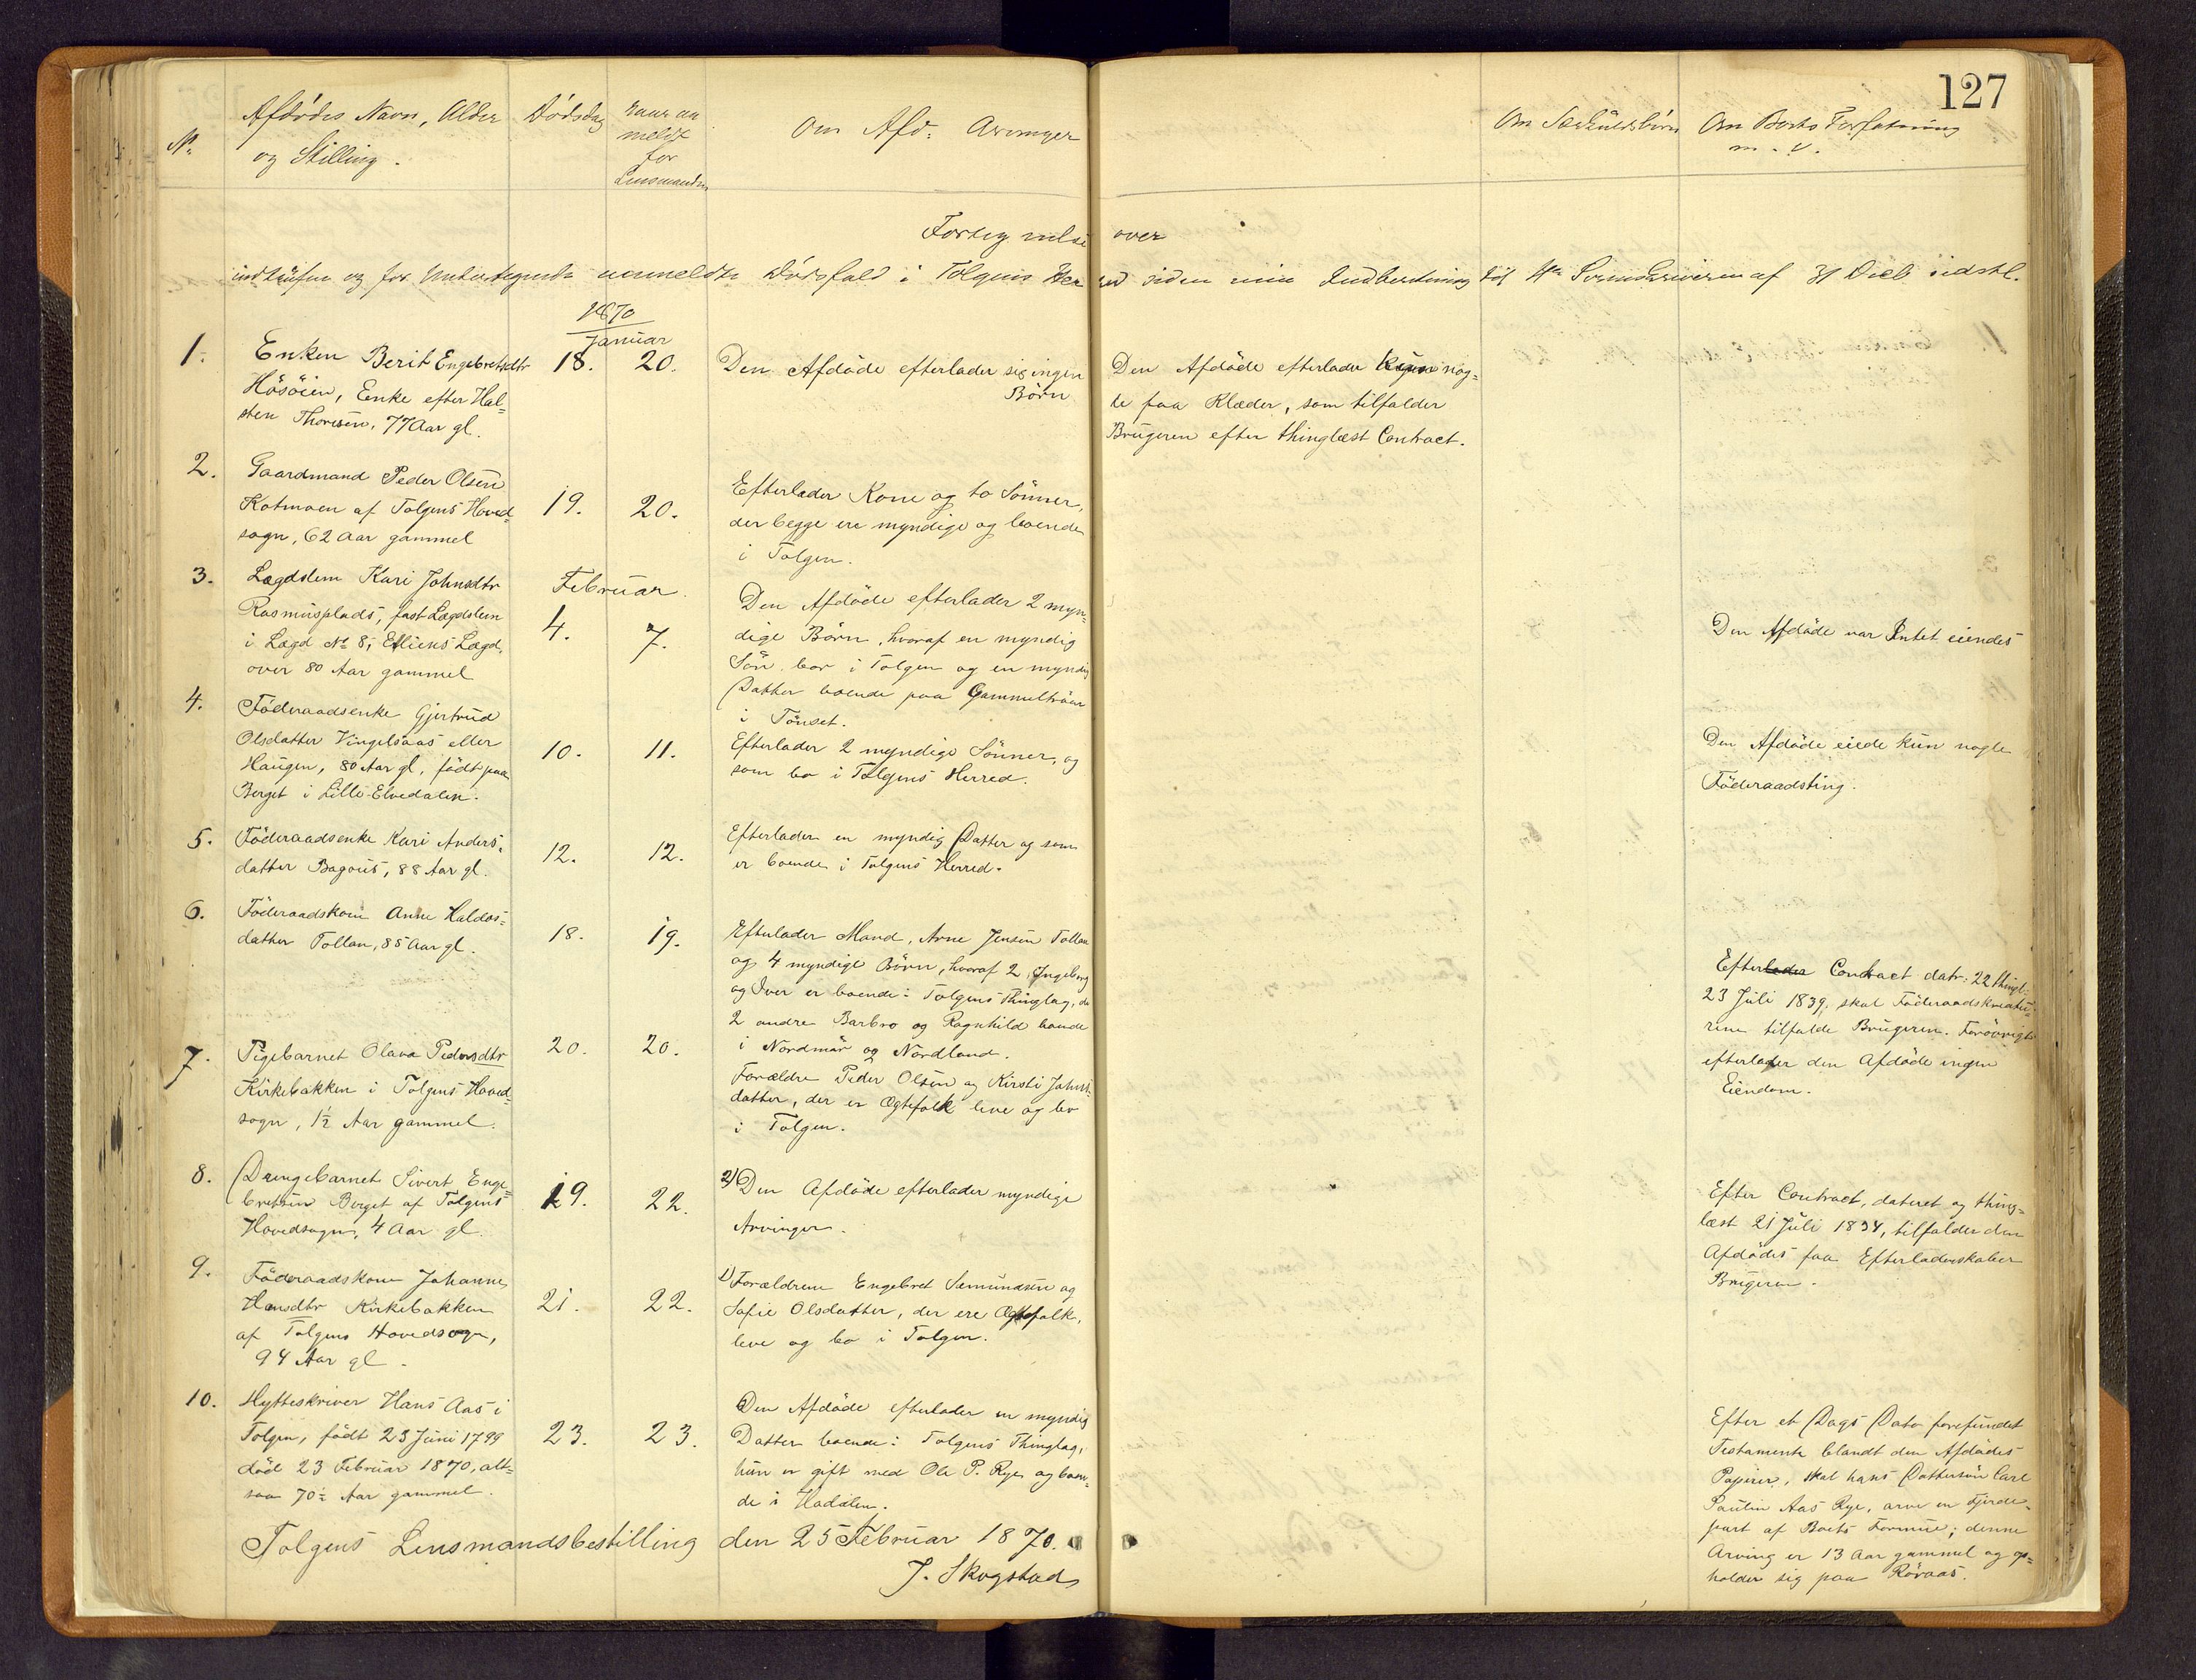 127
No
Afdödes Navn, Alder
og Stilling.
Dödsdag
naar an
meldt
for
Lensmanden
Om Afd: Arvinger
Om Særkuldsbörn
Om Boets Forfatning
m. v.
Fortegnelse over
indtrufne og for Undertegnede anmeldte Dödsfald i Tolgens Herred siden min Indberetning til Hr. Sorenskriveren af 31 Decb. sidstl.
1870
Januar
1.
Enken Berit Engebretsdtr
Hösöien, Enke efter Hal-
sten Thoresen, 77 Aar gl.
18.
20.
Den Afdöde efterlader sig ingen
Börn
Den Afdöde efterlader kun nog-
le faa Klæder, som tilfalder
Brugeren efter thinglæst Contract.
2.
Gaardmand Peder Olsen
Kotmoen af Tolgens Hoved-
sogn, 62 Aar gammel
19.
20.
Efterlader Kone og to Sönner,
der begge ere myndige og boende
i Tolgen.
3.
Lægdslem Kari Johnsdtr
Rasmusplads, fast Lægdslem
i Lægd No 8, Eliens Lægd,
over 80 Aar gammel
Februar
4.
7.
Den Afdöde efterlader 2 myn-
dige Börn, hvoraf en myndig
Sön bor i Tolgen og en myndig
Datter boende paa Gammeltröen
i Tönset.
Den Afdöde var Intet eiendes
4.
Föderaadsenke Gjertrud
Olsdatter Vingelsaas eller
Haugen, 80 Aar gl, födt paa
Berget i Lille-Elvedalen.
10.
11.
Efterlader 2 myndige Sönner, og
som bo i Tolgens Herred.
Den Afdöde eiede kun nogle
Föderaadsting.
5.
Föderaadsenke Kari Anders-
datter Bagöus, 88 Aar gl.
12.
12.
Efterlader en myndig Datter og som
er boende i Tolgens Herred.
6.
Föderaadskone Anne Haldos-
datter Tollan, 85 Aar gl.
18.
19.
Efterlader Mand, Arne Jensen Tollan
og 4 myndige Börn, hvoraf 2, Ingeborg
og Iver er boende i Tolgens Thinglag, de
2 andre Barbro og Ragnhild boende
i Nordmör og Nordland.
Efterlader Contract datr: 22 thingl:
23 Juli 1839, skal Föderaadskreatu-
rene tilfalde Brugeren. Forövrigt
efterlader den Afdöde ingen
Eiendom.
7.
Pigebarnet Olava Pedersdtr
Kirkebakken i Tolgens Hoved-
sogn, 1½ Aar gammel.
20.
20.
Forældre Peder Olsen og Kirsti Johns-
datter, der er Ægtefolk leve og bo
i Tolgen.
8.
Drengebarnet Sivert Enge-
bretsen Berget af Tolgens
Hovedsogn, 4 Aar gl.
19.
22.
2) Den Afdöde efterlader myndige
Arvinger.
Efter Contract, dateret og thing-
læst 21 Juli 1834, tilfalder den
Afdödes faa Efterladenskaber
Brugeren.
9.
Föderaadskone Johanne
Hansdtr Kirkebakken
af Tolgens Hovedsogn,
94 Aar gl.
21.
22.
1) Forældrene Engebret Semundsen og
Sofie Olsdatter, der ere Ægtefolk,
leve og bo i Tolgen.
10.
Hytteskriver Hans Aas i
Tolgen, födt 23 Juni 1799
död 23 Februar 1870, alt-
saa 70½ Aar gammel.
23.
23.
Den Afdöde efterlader en myndig
Datter boende i Tolgens Thinglag,
hun er gift med Ole P. Rye og boen-
de i Hodalen.
Efter et Dags Dato forefundet
Testamente blandt den Afdödes
Papirer, skal hans Dattersön Carl
Paulin Aas Rye, arve en Fjerde-
part af Boets Formue; denne
Arving er 13 Aar gammel og op-
holder sig paa Röraas.
Tolgens Lensmandsbestilling den 25 Februar 1870.
J. Skogstad